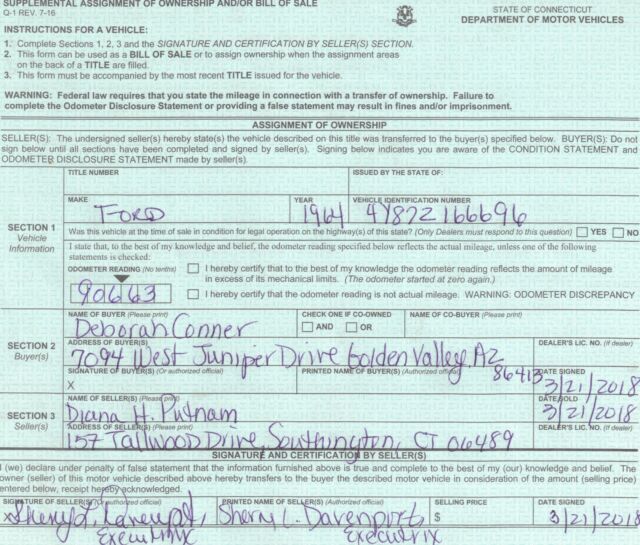 SUPPLEMENTAL ASSIGNMENT OF OWNERSHIP AND/OR BILL OF SALE
Q-1 REV. 7-16
STATE OF CONNECTICUT
DEPARTMENT OF MOTOR VEHICLES
INSTRUCTIONS FOR A VEHICLE:
1. Complete Sections 1, 2, 3 and the SIGNATURE AND CERTIFICATION BY SELLER(S) SECTION.
2. This form can be used as a BILL OF SALE or to assign ownership when the assignment areas
on the back of a TITLE are filled.
3. This form must be accompanied by the most recent TITLE issued for the vehicle.
WARNING: Federal law requires that you state the mileage in connection with a transfer of ownership. Failure to
complete the Odometer Disclosure Statement or providing a false statement may result in fines and/or imprisonment.
ASSIGNMENT OF OWNERSHIP
SELLER(S): The undersigned seller(s) hereby state(s) the vehicle described on this title was transferred to the buyer(s) specified below. BUYER(S): Do not
sign below until all sections have been completed and signed by seller(s). Signing below indicates you are aware of the CONDITION STATEMENT and
ODOMETER DISCLOSURE STATEMENT made by seller(s).
SECTION 1
Vehicle
Information
TITLE NUMBER
ISSUED BY THE STATE OF:
MAKE
FORD
YEAR
1964
VEHICLE IDENTIFICATION NUMBER
4Y87Z166696
Was this vehicle at the time of sale in condition for legal operation on the highway(s) of this state? (Only Dealers must respond to this question) YES NO
I state that, to the best of my knowledge and belief, the odometer reading specified below reflects the actual mileage, unless one of the following
statements is checked:
ODOMETER READING (No tenths)
90663
I hereby certify that to the best of my knowledge the odometer reading reflects the amount of mileage
in excess of its mechanical limits. (The odometer started at zero again.)
I hereby certify that the odometer reading is not actual mileage. WARNING: ODOMETER DISCREPANCY
SECTION 2
Buyer(s)
NAME OF BUYER (Please print)
Deborah Conner
CHECK ONE IF CO-OWNED
AND OR
NAME OF CO-BUYER (Please print)
ADDRESS OF BUYER(S)
7094 West Juniper Drive Golden Valley, AZ
86413
DEALER'S LIC. NO. (If dealer)
SIGNATURE OF BUYER(S) (Or authorized official)
X
PRINTED NAME OF BUYER(S) (Authorized official)
DATE SIGNED
3/21/2018
SECTION 3
Seller(s)
NAME OF SELLER(S) (Please print)
Diana H. Putnam
DATE SOLD
3/21/2018
ADDRESS OF SELLER(S) (Please print)
157 Tallwood Drive, Southington, CT 06489
DEALER'S LIC. NO. (If dealer)
SIGNATURE AND CERTIFICATION BY SELLER(S)
I (we) declare under penalty of false statement that the information furnished above is true and complete to the best of my (our) knowledge and belief. The
owner (seller) of this motor vehicle described above hereby transfers to the buyer the described motor vehicle in consideration of the amount (selling price)
entered below, receipt hereby acknowledged.
SIGNATURE OF SELLER(S) (Or authorized official)
x Sheryl L. Davenport,
Executrix
PRINTED NAME OF SELLER(S) (Authorized official)
Sheryl L. Davenport,
Executrix
SELLING PRICE
$
DATE SIGNED
3/21/2018